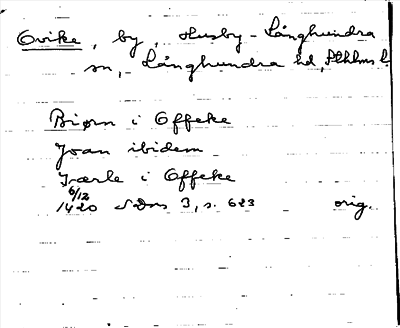 Ovike, by, Husby-Långhundra
sn, Långhundra hd, Sthlms l.
Biørn i Offeke
Joan ibidem
Jærle i Offeke
6/12
1420 SvDns 3, s. 623 orig.